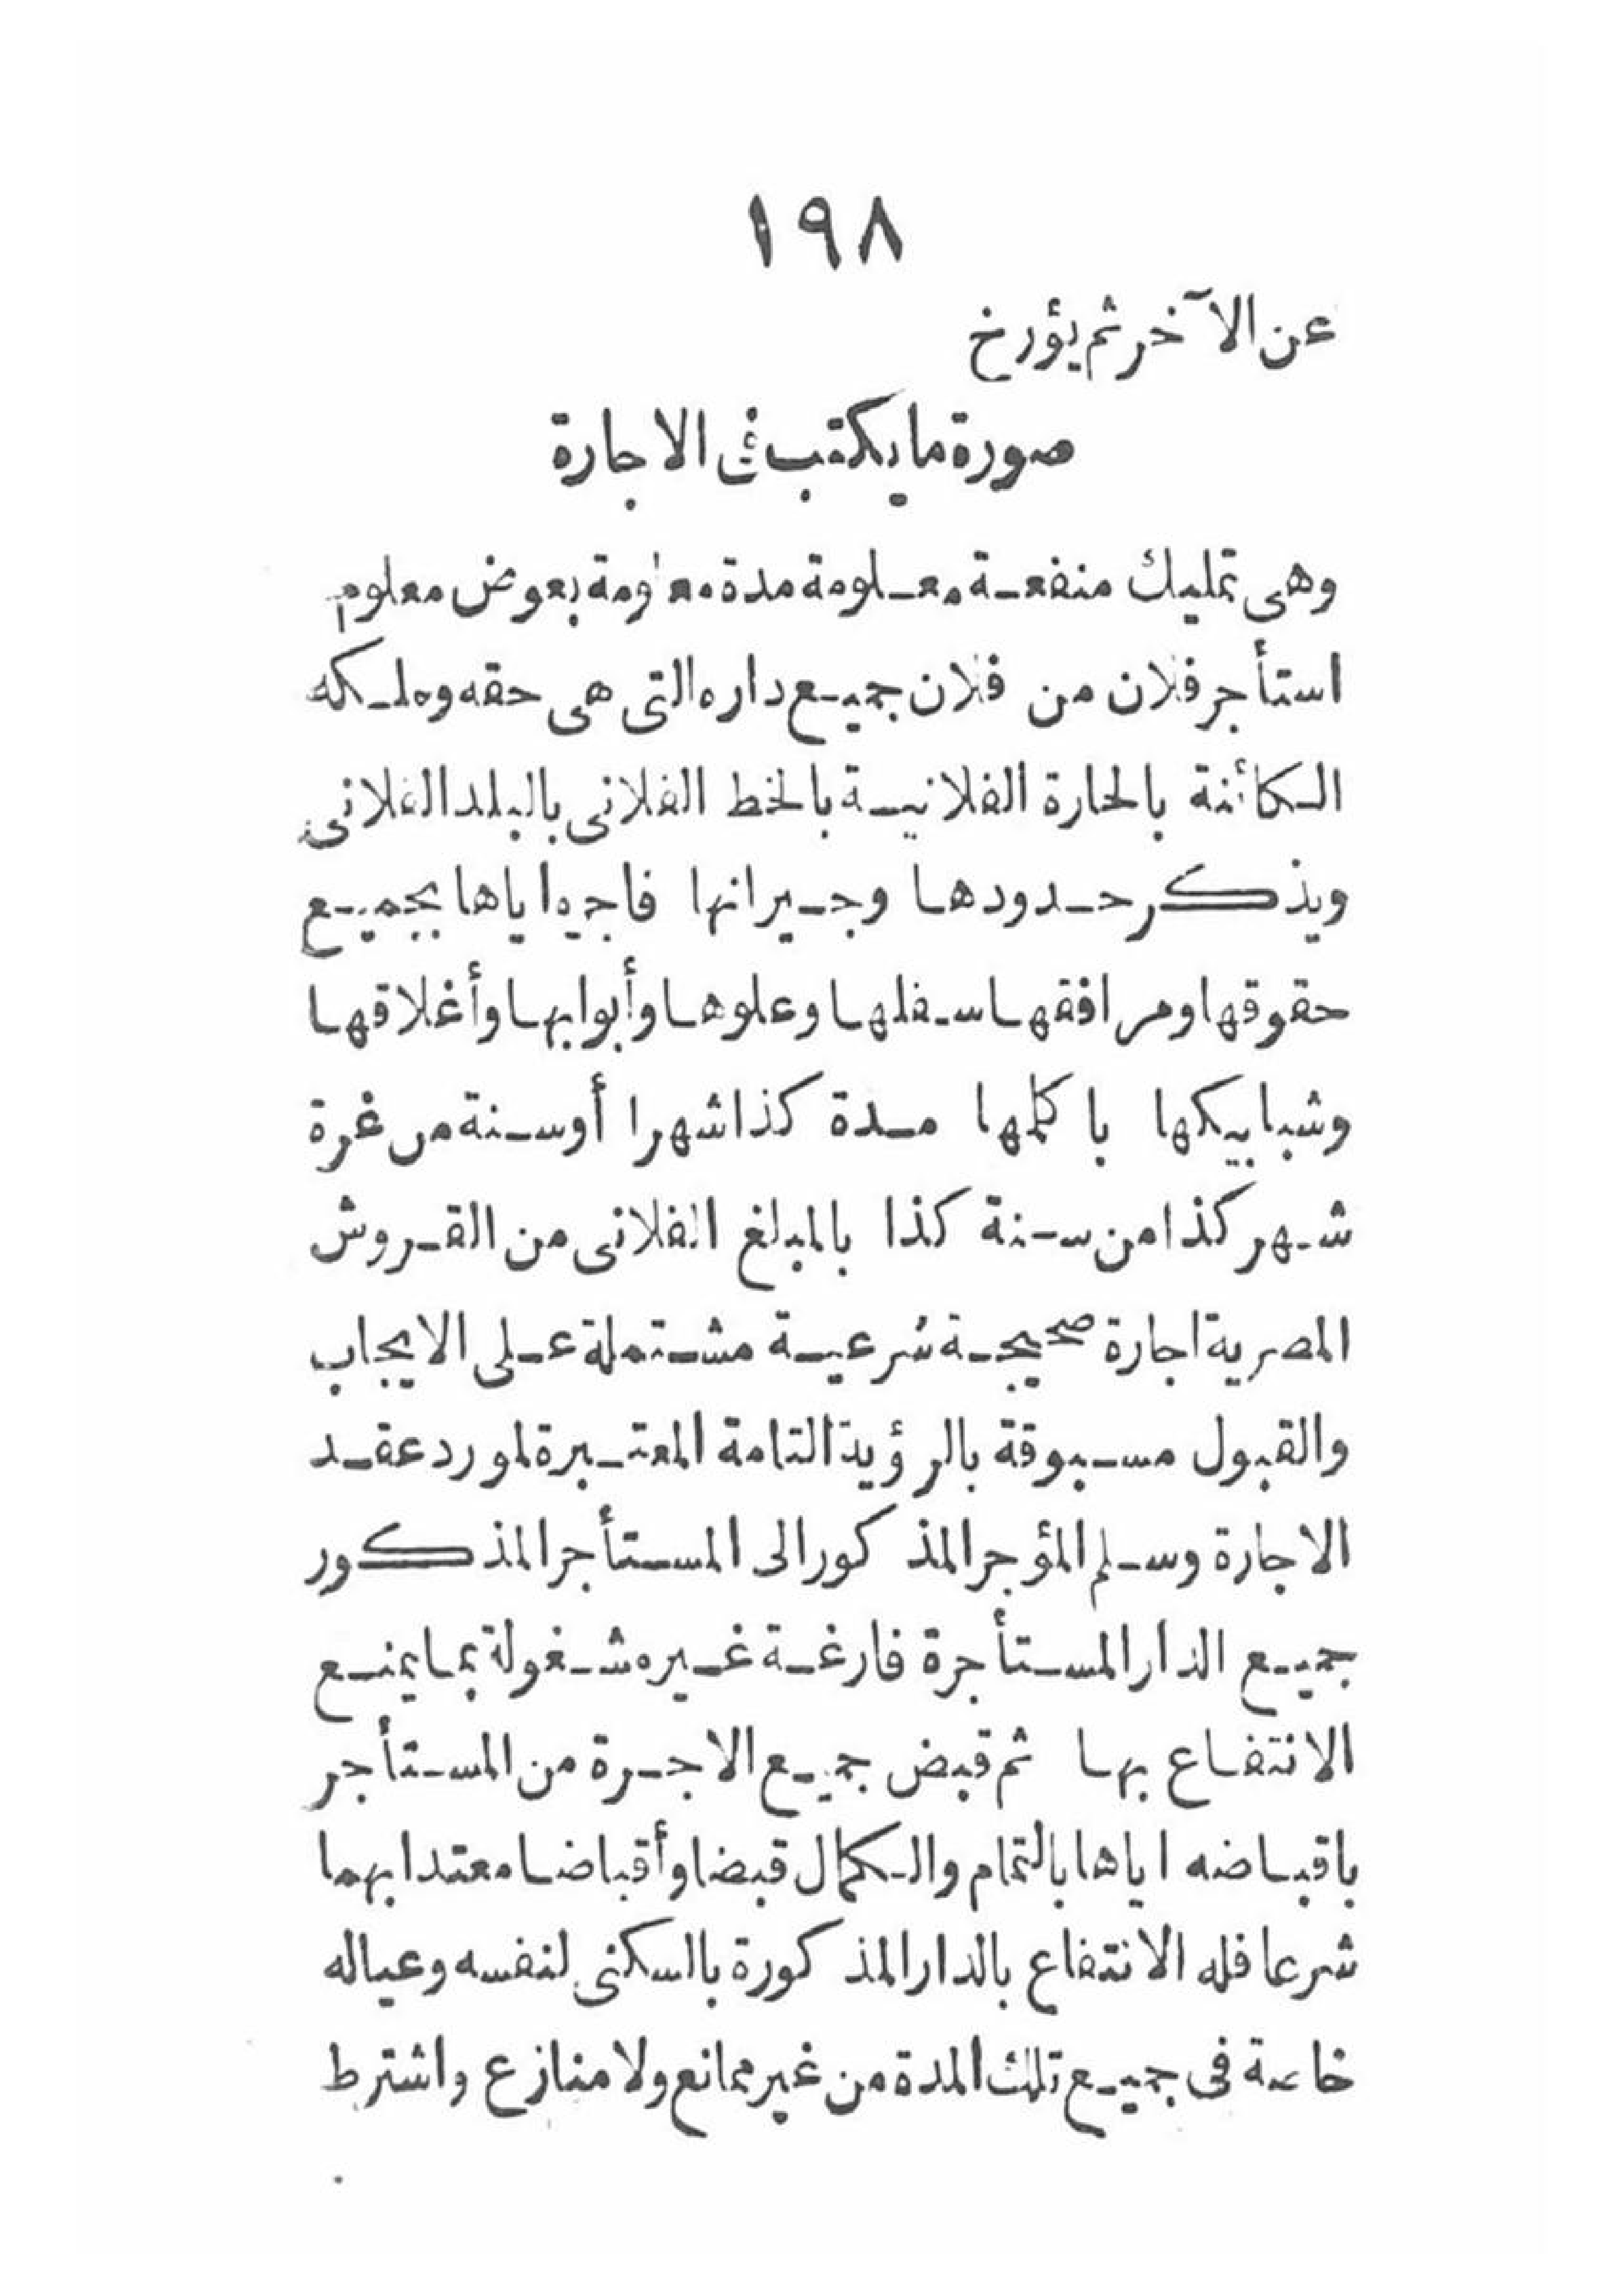 ١٩٨
عن الآخر ثم يؤرخ
صورة ما يكتب فى الاجارة
وهى تمليك منفعة معلومة مدة معلومة بعوض معلوم
استأجر فلان من فلان جميع داره التى هى حقه وملكه
الكائنة بالحارة الفلانية بالخط الفلانى بالبلد الفلانى
ويذكر حدودها وجيرانها فاجره اياها بجميع
حقوقها ومرافقها سفلها وعلوها وأبوابها وأغلاقها
وشبابيكها باكملها مدة كذا شهرا أوسنة من غرة
شهر كذا من سنة كذا بالمبلغ الفلانى من القروش
المصرية اجارة صحيحة شرعية مشتملة على الايجاب
والقبول مسبوقة بالرؤية التامة المعتبرة لمورد عقد
الاجارة وسلم المؤجر المذكور الى المستأجر المذكور
جميع الدار المستأجرة فارغة غير مشغولة بما يمنع
الانتفاع بها ثم قبض جميع الاجرة من المستأجر
باقباضه اياها بالتمام والكمال قبضا وأقباضا معتدا بهما
شرعا فله الانتفاع بالدار المذكورة بالسكنى لنفسه وعياله
خاصة فى جميع تلك المدة من غير ممانع ولا منازع واشترط